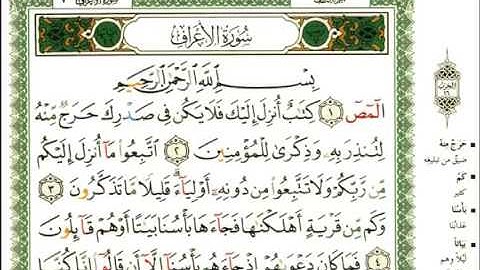 سُورَةُ الأَعْرَافِ
بِسْمِ اللَّهِ الرَّحْمَٰنِ الرَّحِيمِ
الٓمٓصٓ ﴿١﴾ كِتَٰبٌ أُنزِلَ إِلَيْكَ فَلَا يَكُن فِى صَدْرِكَ حَرَجٌ مِّنْهُ
لِتُنذِرَ بِهِۦ وَذِكْرَىٰ لِلْمُؤْمِنِينَ ﴿٢﴾ ٱتَّبِعُوا۟ مَآ أُنزِلَ إِلَيْكُم
مِّن رَّبِّكُمْ وَلَا تَتَّبِعُوا۟ مِن دُونِهِۦٓ أَوْلِيَآءَ قَلِيلًا مَّا تَذَكَّرُونَ ﴿٣﴾
وَكَم مِّن قَرْيَةٍ أَهْلَكْنَٰهَا فَجَآءَهَا بَأْسُنَا بَيَٰتًا أَوْ هُمْ قَآئِلُونَ
﴿٤﴾ فَمَا كَانَ دَعْوَىٰهُمْ إِذْ جَآءَهُم بَأْسُنَآ إِلَّآ أَن قَالُوٓا۟ إِنَّا كُنَّا
حَرَجٌ مِنْهُ
ضيق من تبليغه
كَمْ
كثير
بَأْسُنَا
عذابنا
بَيَاتًا
ليلا وهم